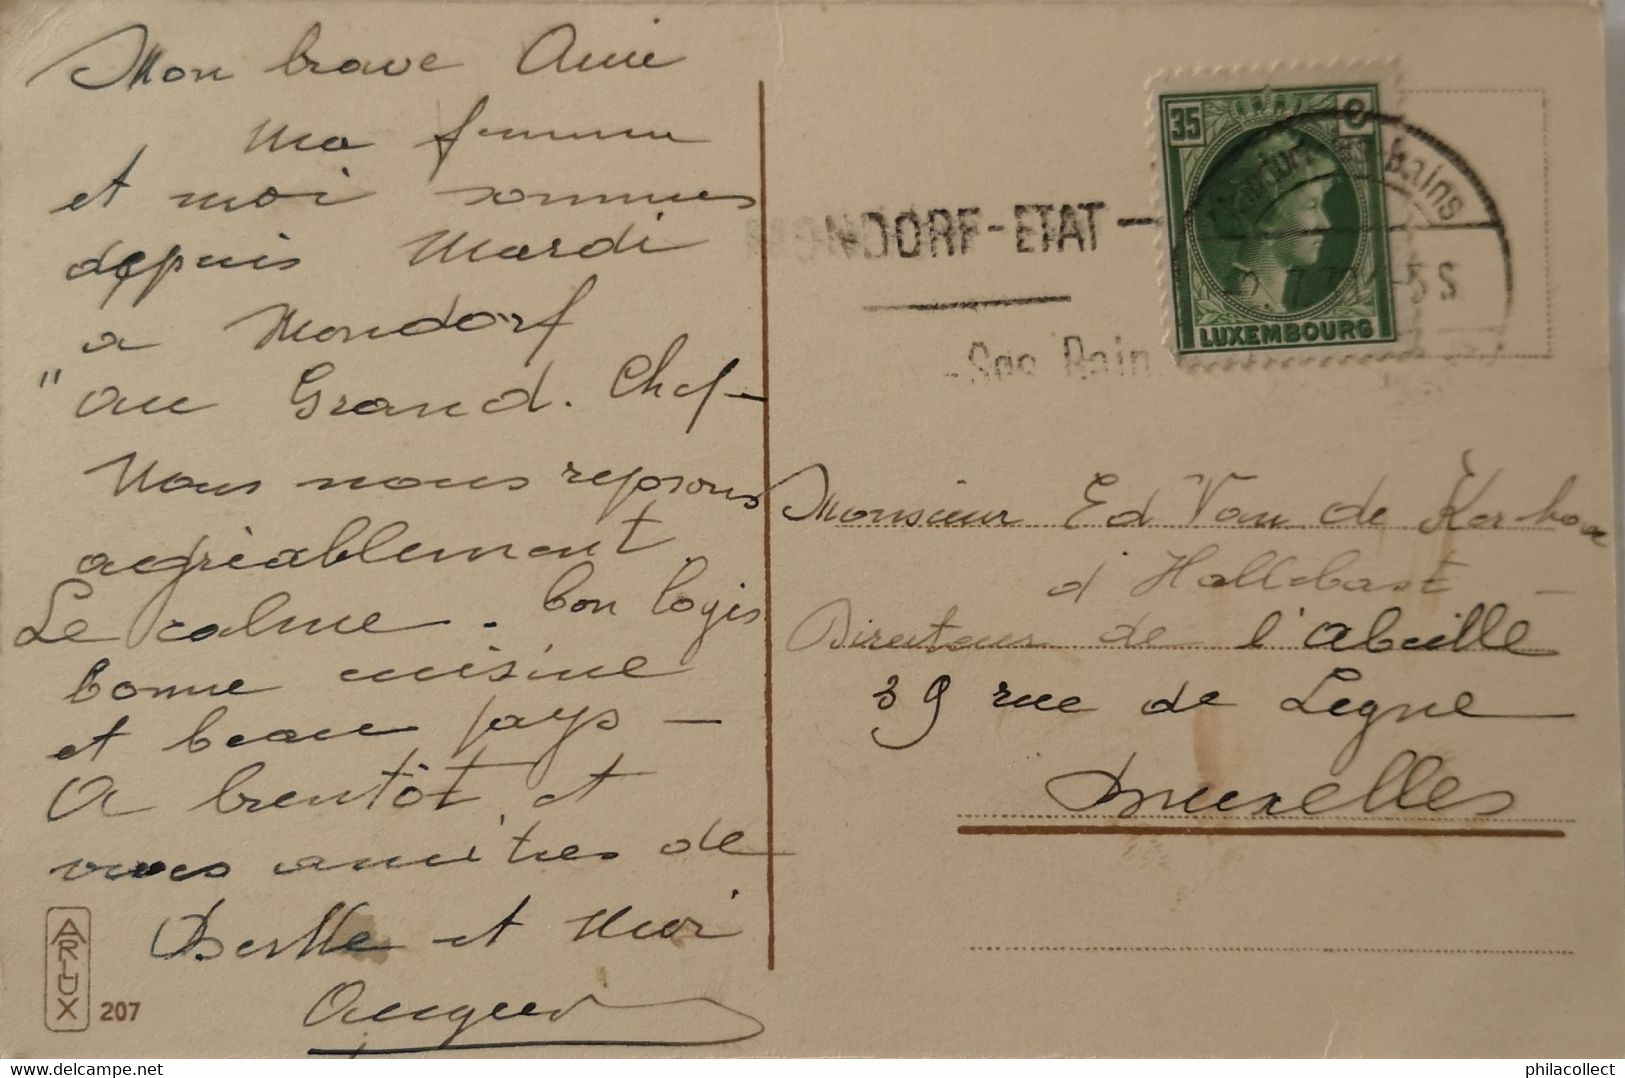 Mon brave Ami
Ma femme
et moi sommes
depuis Mardi
a Mondorf
" au Grand. Chef -
Nous nous reposons
agréablement
Le calme - bon logis
bonne cuisine
et beau pays -
A bientôt et
vives amitiés de
Berthe et Moi
ARJUX
207
35
LUXEMBOURG
Mondorf-les-bains
MONDORF-ETAT -
- Ses Bain
-5 S
Monsieur Ed Van de Kerhove
d'Hallebast -
Directeur de l'abeille
39 rue de Ligne
Bruxelles
delcampe.net
philacollect